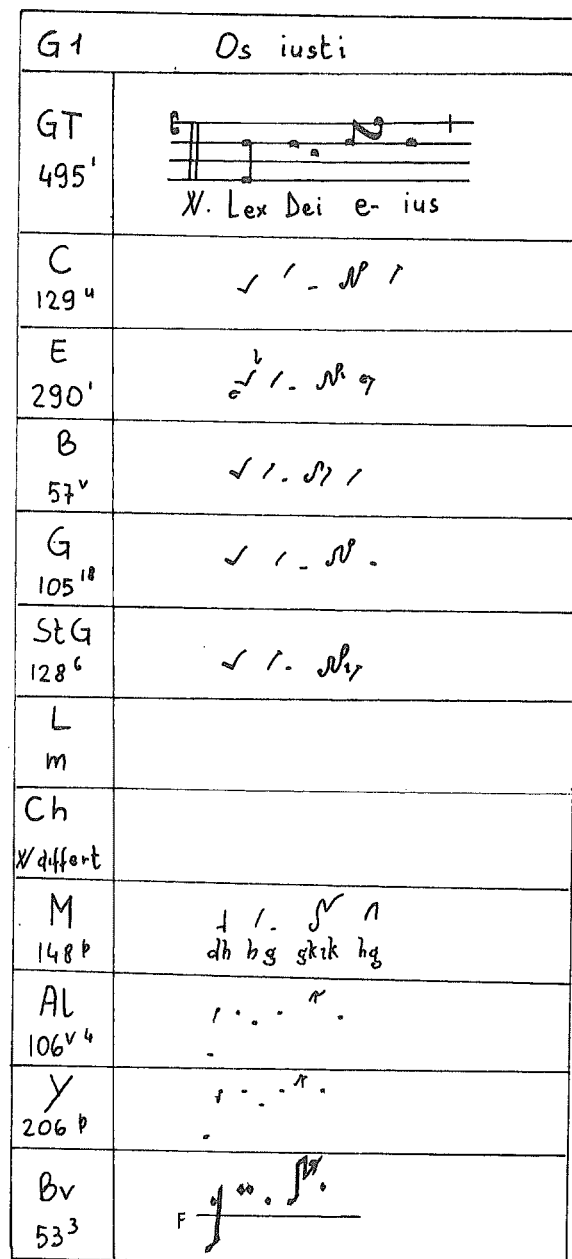 G1 Os iusti
GT
495'
V. Lex Dei e- ius
C
129 u
E
290'
B
57 v
G
105 18
St G
128 6
L
m
Ch
V differt
M
148 p
dh hg gkik hg
Al
106 v 4
Y
206 p
Bv
53 3
F